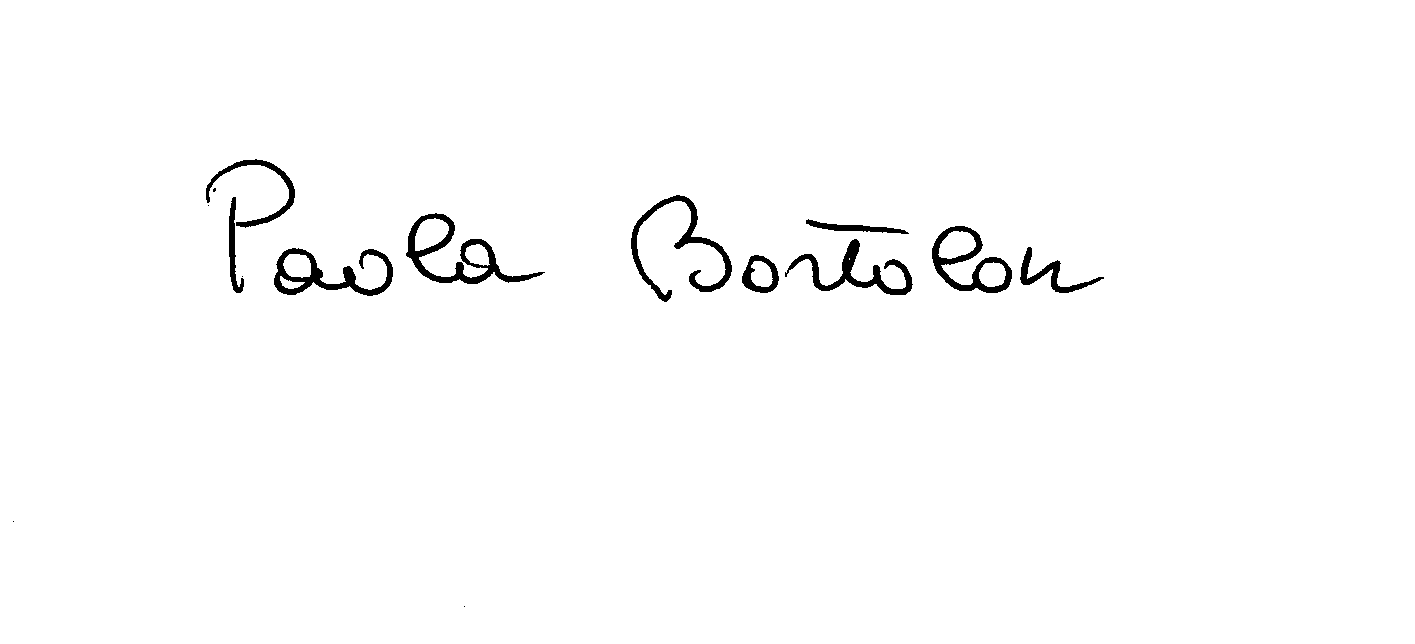 Paola Bortolon